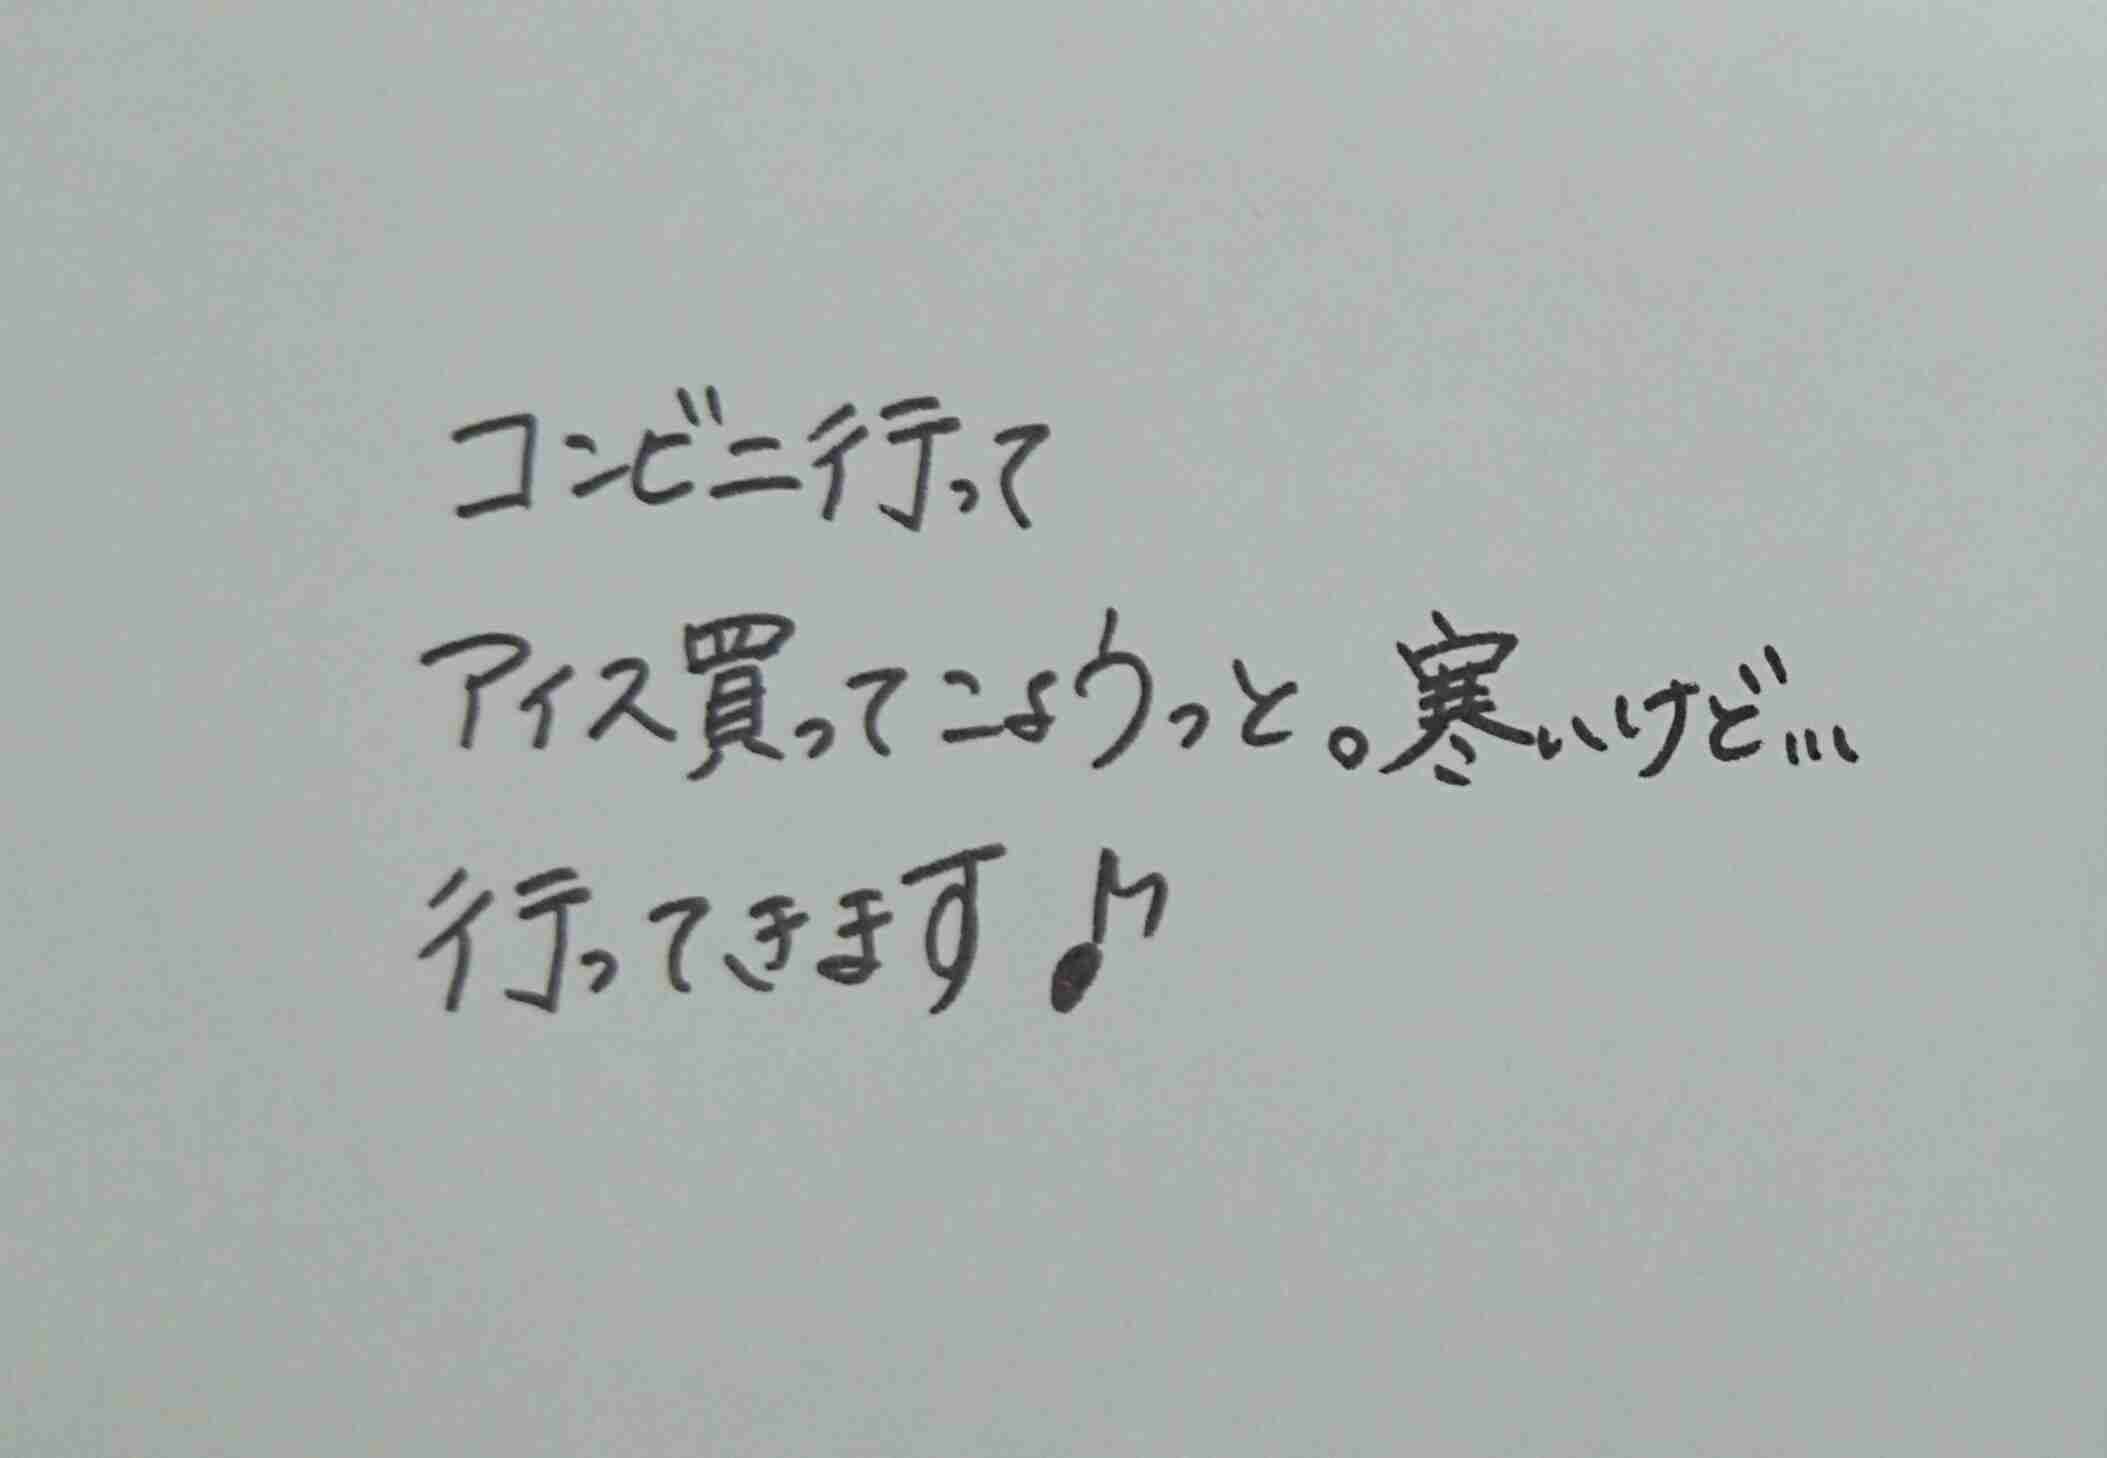 コンビニ行って
アイス買ってこようっと。寒いけど...
行ってきます♪